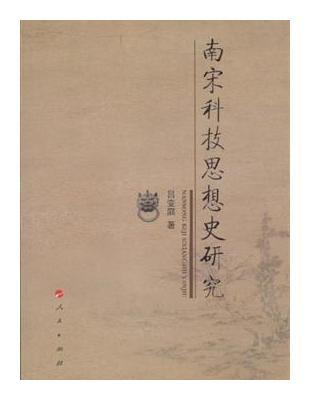 南宋科技思想史研究
NANSONG KEJI SIXIANGSHI YANJIU
吕变庭 著
人民出版社